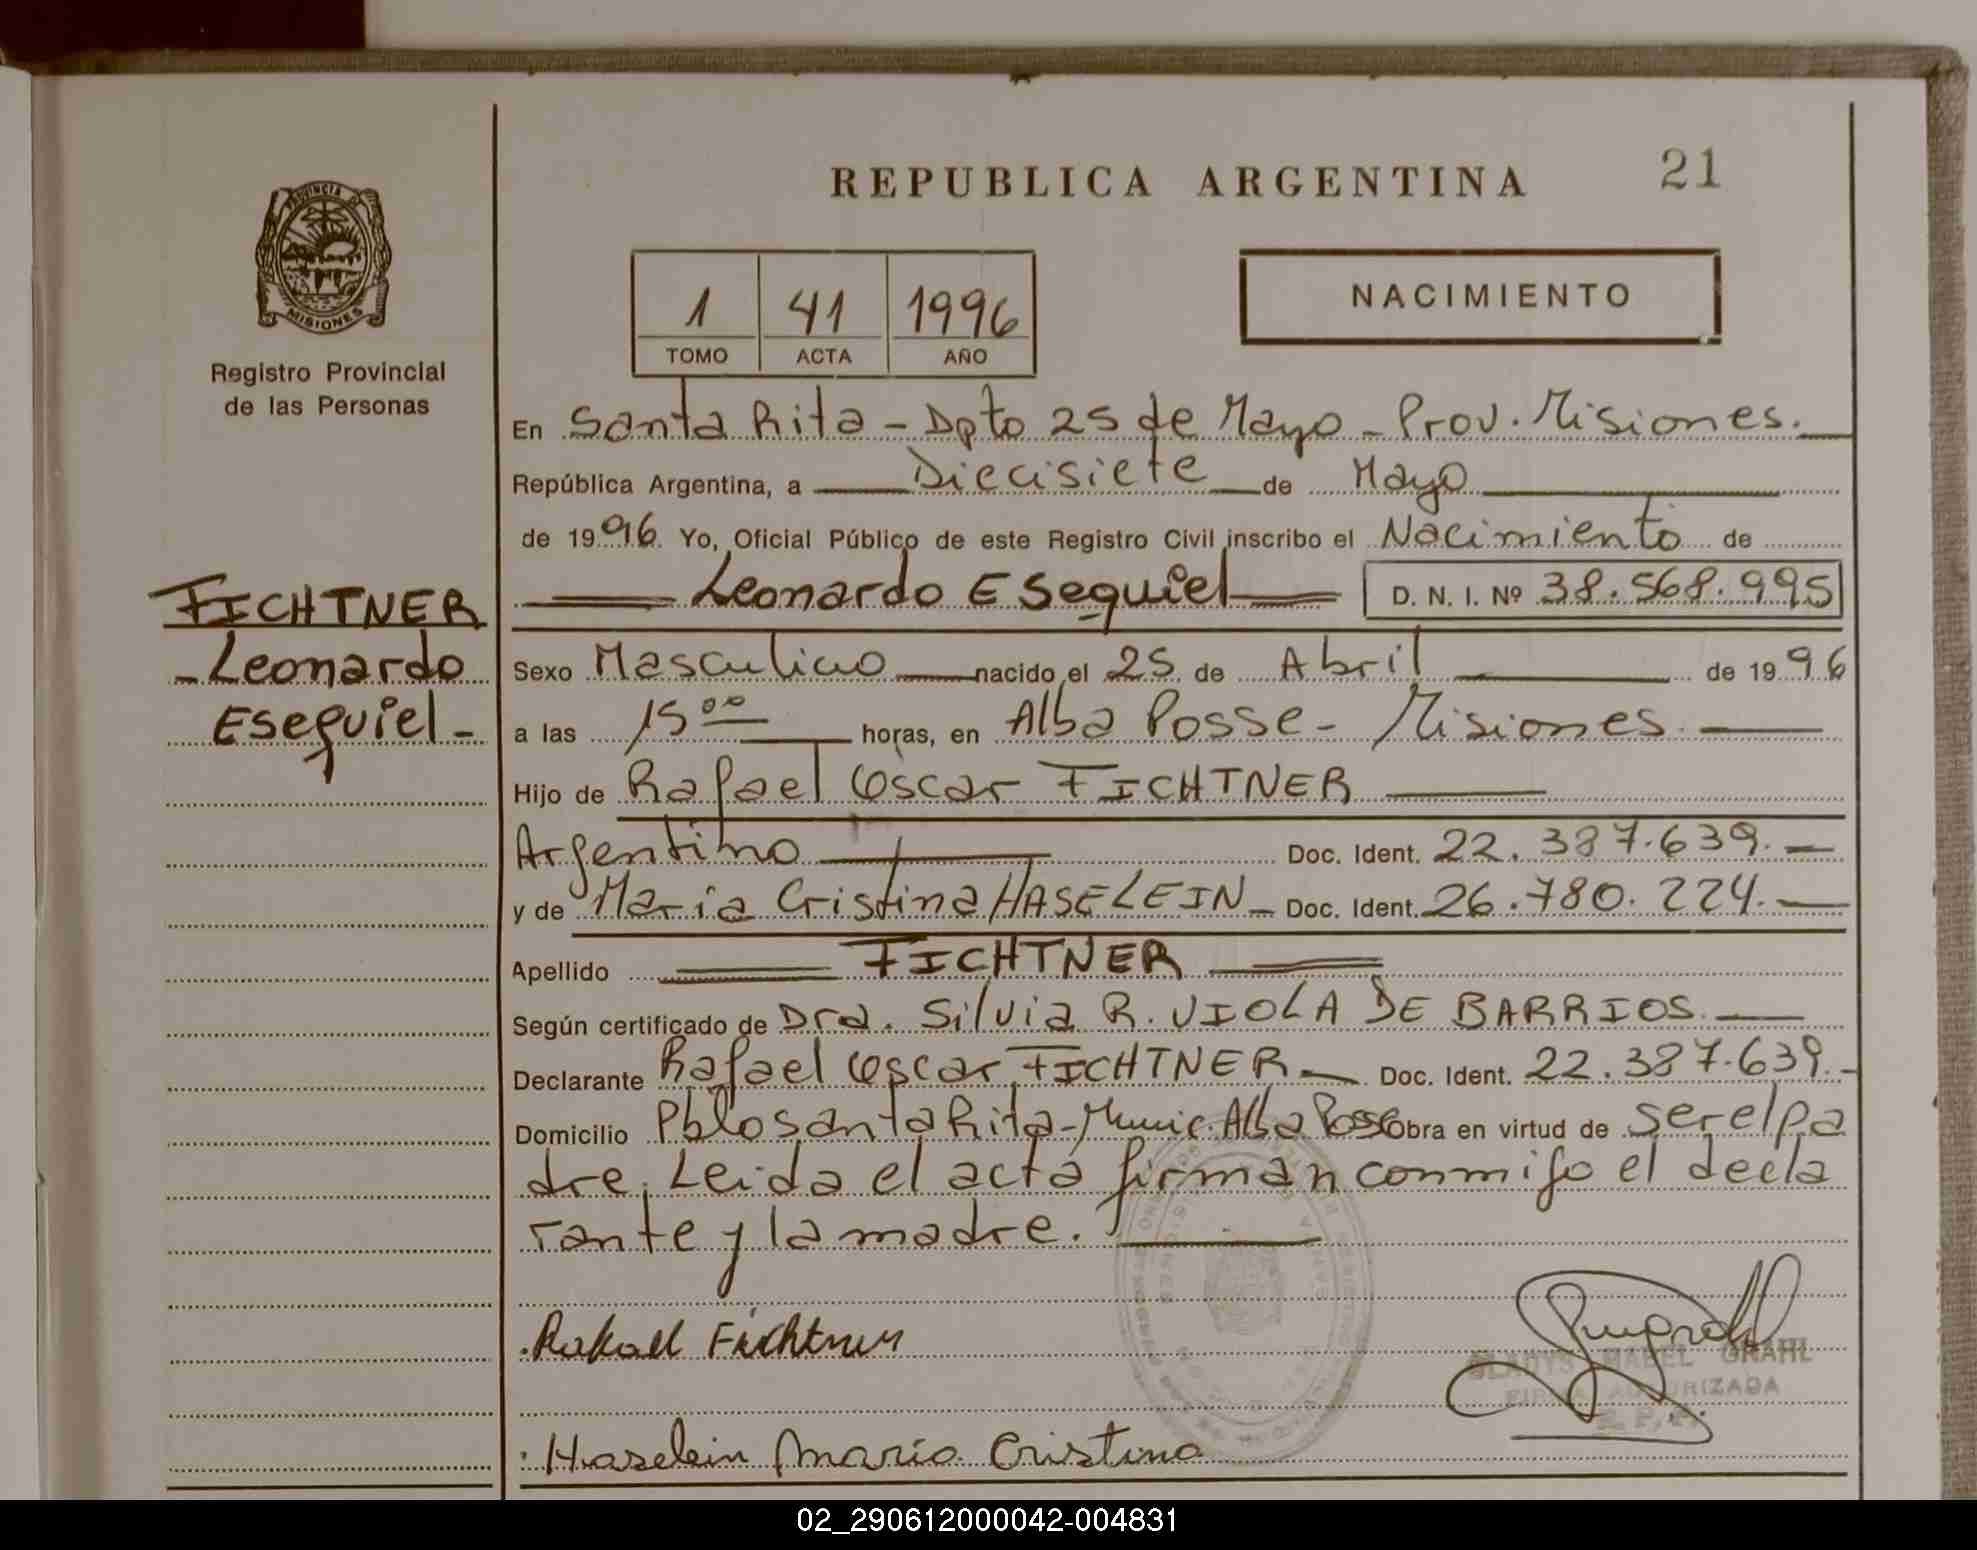 REPUBLICA ARGENTINA
21
PROVINCIA DE
MISIONES
Registro Provincial
de las Personas
1 41 1996
TOMO ACTA AÑO
NACIMIENTO
En Santa Rita - Dpto 25 de Mayo - Prov. Misiones.
República Argentina, a Diecisiete de Mayo
de 1996. Yo, Oficial Público de este Registro Civil inscribo el Nacimiento de
Leonardo Esequiel D. N. I. Nº 38.568.995
FICHTNER
- Leonardo
Esequiel -
Sexo Masculino nacido el 25 de Abril de 1996
a las 15 00 horas, en Alba Posse - Misiones
Hijo de Rafael Oscar FICHTNER
Argentino Doc. Ident. 22.387.639.-
y de María Cristina HASELEIN - Doc. Ident. 26.780.224.-
Apellido FICHTNER
Según certificado de Dra. Silvia R. VIOLA DE BARRIOS.
Declarante Rafael Oscar FICHTNER - Doc. Ident. 22.387.639.-
Domicilio Pblo Santa Rita - Munic. Alba Posse obra en virtud de ser el pa
dre. Leida el acta firman conmigo el decla
rante y la madre.
Rafael Fichtner
GLADYS MABEL GRAHL
FIRMA AUTORIZADA
Haselein María Cristina
02_290612000042-004831